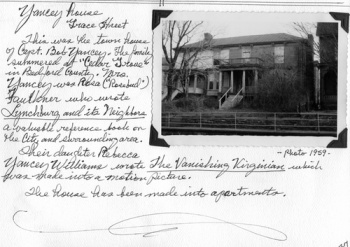 Yancey House
Grace Street
This was the town house
of Capt. Bob Yancey. The family
summered at "Cedar Grove" in
in Bedford County. Mrs.
Yancey was Rosa ("Rosebud")
Faulkner who wrote
Lynchburg and its Neighbors
a valuable reference book on
the City and surrounding area.
Their daughter Rebecca
Yancey Williams wrote The Vanishing Virginian which
was made into a motion picture.
The house has been made into apartments.
- Photo 1959 -